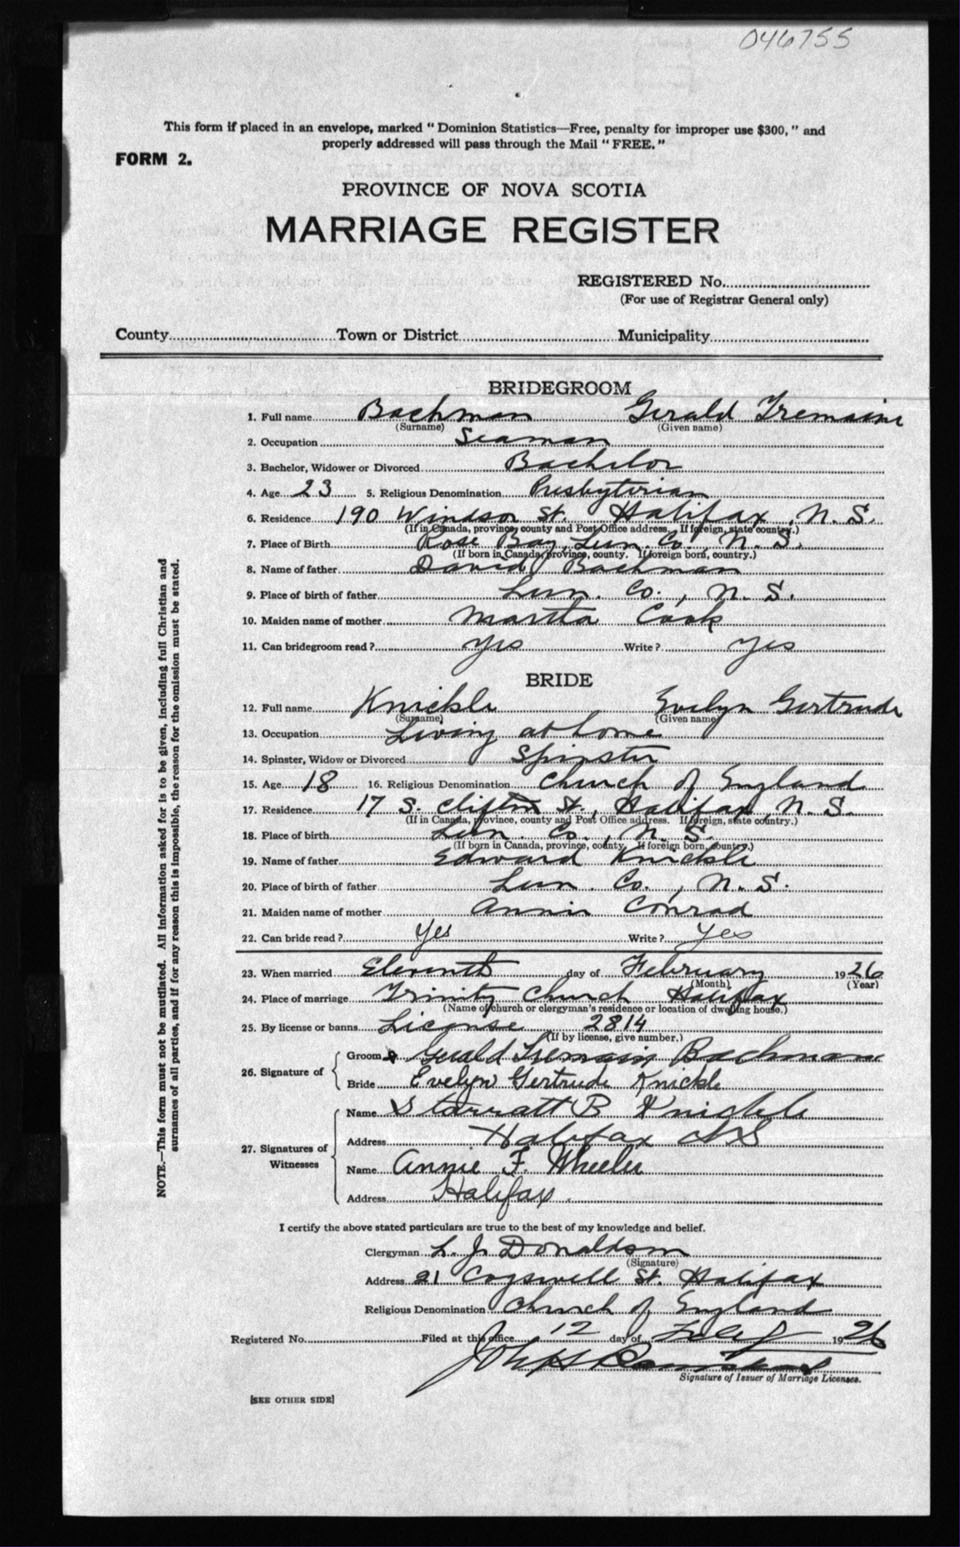 046755
This form if placed in an envelope, marked "Dominion Statistics—Free, penalty for improper use $300," and
properly addressed will pass through the Mail "FREE."
FORM 2.
PROVINCE OF NOVA SCOTIA
MARRIAGE REGISTER
REGISTERED No.
(For use of Registrar General only)
County Town or District Municipality
BRIDEGROOM
1. Full name Bachman Gerald Tremaine
(Surname) (Given name)
2. Occupation Seaman
3. Bachelor, Widower or Divorced Bachelor
4. Age 23 5. Religious Denomination Presbyterian
6. Residence 190 Windsor St. Halifax, N. S.
(If in Canada, province, county and Post Office address. If foreign, state country.)
7. Place of Birth Rose Bay, Lun. Co. N. S.
(If born in Canada, province, county. If foreign born, country.)
8. Name of father David Bachman
9. Place of birth of father Lun. Co., N. S.
10. Maiden name of mother Martha Cook
11. Can bridegroom read? yes Write? yes
BRIDE
12. Full name Knickle Evelyn Gertrude
(Surname) (Given name)
13. Occupation Living at home
14. Spinster, Widow or Divorced Spinster
15. Age 18 16. Religious Denomination Church of England
17. Residence 17 S. Clifton St., Halifax, N. S.
(If in Canada, province, county and Post Office address. If foreign, state country.)
18. Place of birth Lun. Co., N. S.
(If born in Canada, province, county. If foreign born, country.)
19. Name of father Edward Knickle
20. Place of birth of father Lun. Co., N. S.
21. Maiden name of mother Annie Conrad
22. Can bride read? Yes Write? Yes
23. When married Eleventh day of February 1926
(Month) (Year)
24. Place of marriage Trinity Church Halifax
(Name of church or clergyman's residence or location of dwelling house.)
25. By license or banns License 2814
(If by license, give number.)
26. Signature of
Groom Gerald Tremain Bachman
Bride Evelyn Gertrude Knickle
27. Signatures of Witnesses
Name Starratt B Knickle
Address Halifax NS
Name Annie F. Wheeler
Address Halifax.
I certify the above stated particulars are true to the best of my knowledge and belief.
Clergyman L. J. Donaldson
(Signature)
Address 21 Cogswell St. Halifax
Religious Denomination Church of England
Registered No. Filed at this office 12 day of Feby 1926
Signature of Issuer of Marriage Licenses.
[SEE OTHER SIDE]
NOTE.—This form must not be mutilated. All information asked for is to be given, including full Christian and
surnames of all parties, and if for any reason this is impossible, the reason for the omission must be stated.